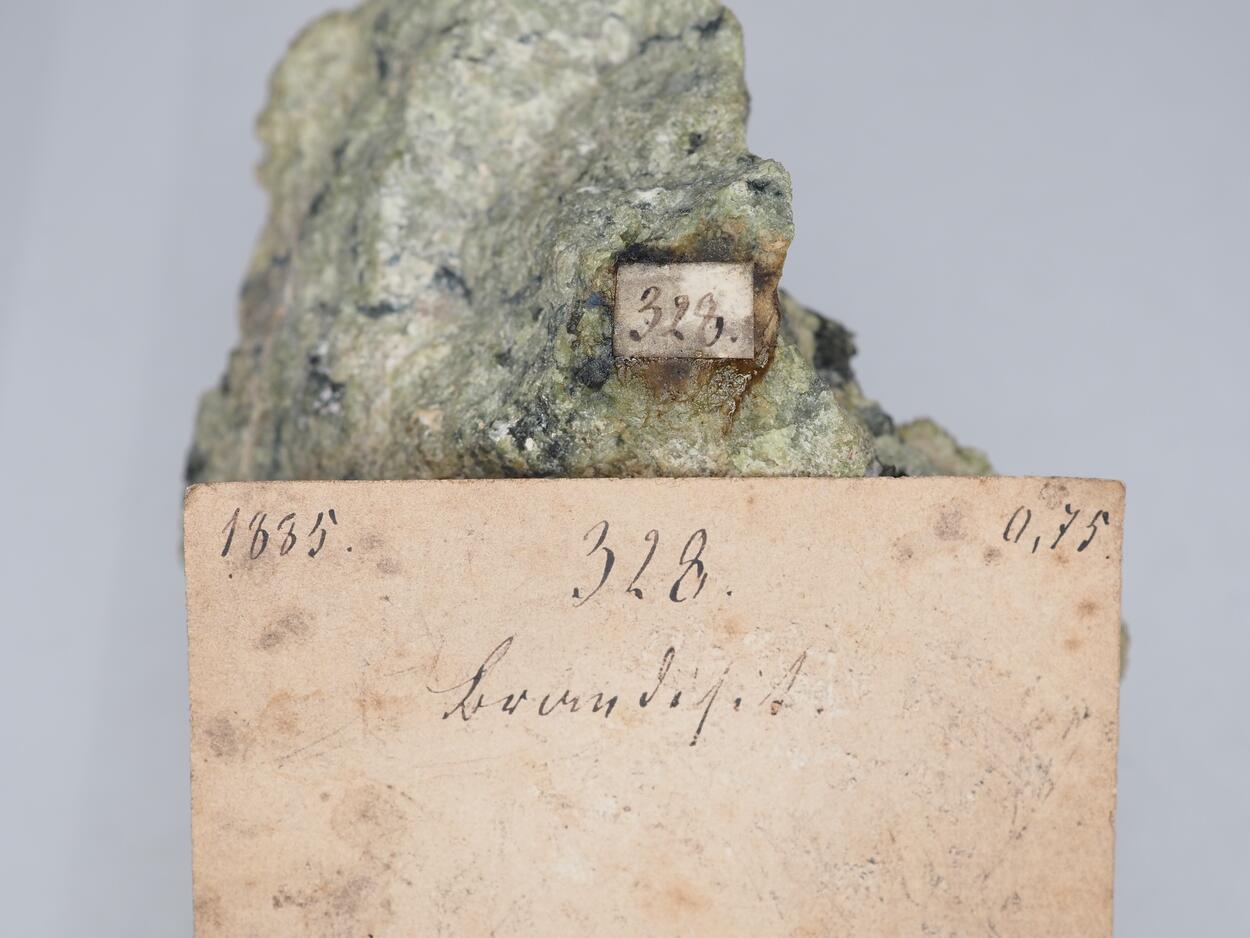 328.
1885. 328. 0,75.
Brandisit.